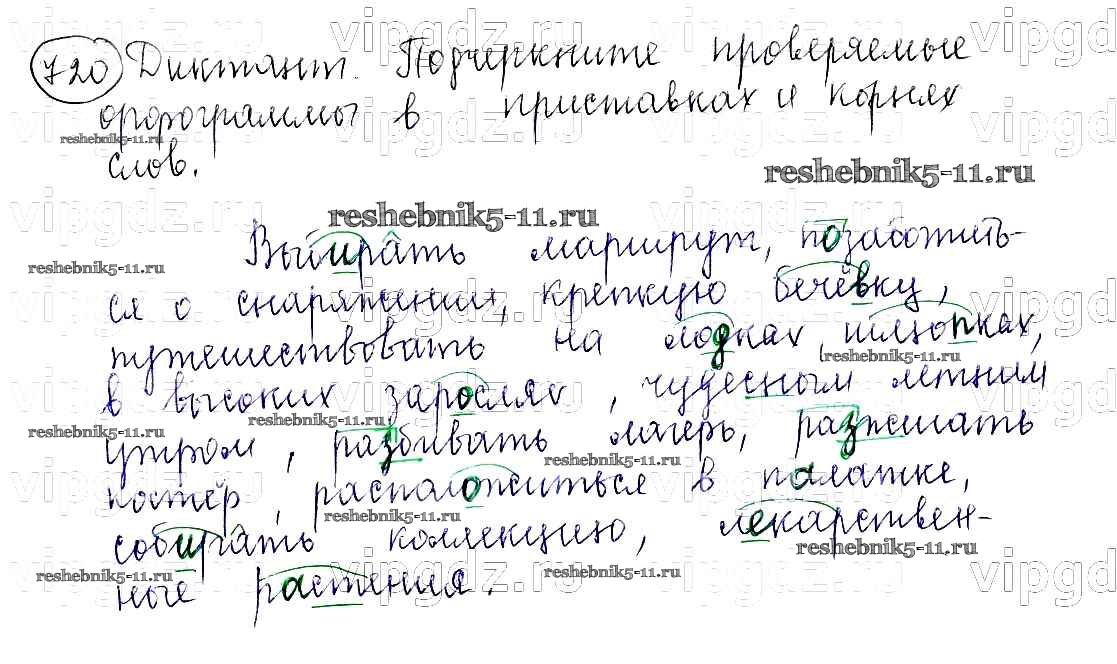 720 Диктант. Подчеркните проверяемые
орфограммы в приставках и корнях
слов.
Выбирать маршрут, позаботить-
ся о снаряжении, крепкую бечёвку,
путешествовать на лодках, шлюпках,
в высоких зарослях, чудесным летним
утром, разбивать лагерь, разжигать
костёр, расположиться в палатке,
собирать коллекцию, лекарствен-
ные растения.